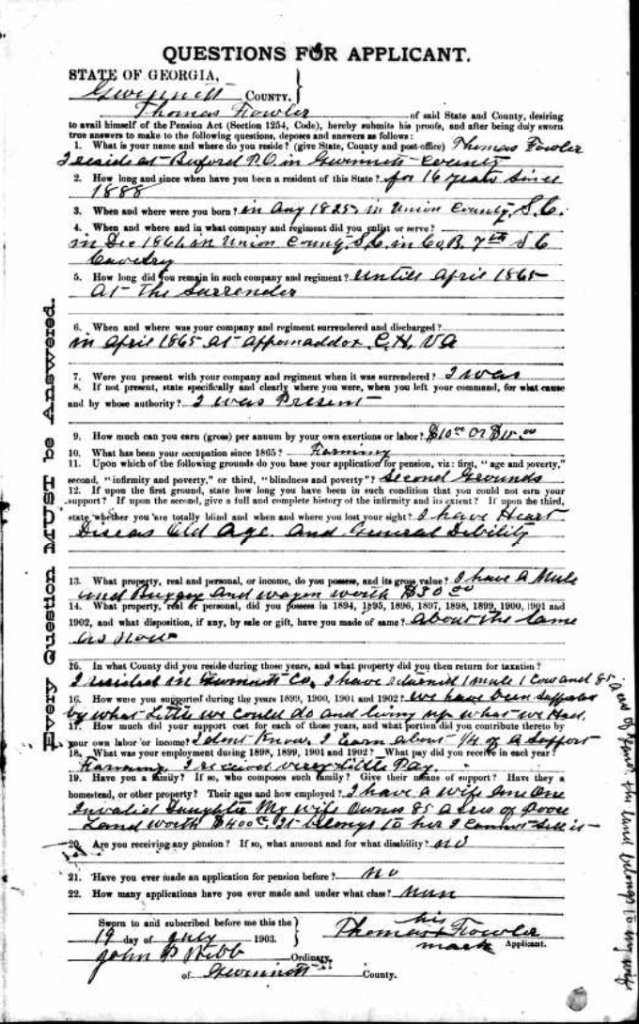 QUESTIONS FOR APPLICANT.
STATE OF GEORGIA,
Gwinnett COUNTY.
Thomas Fowler of said State and County, desiring
to avail himself of the Pension Act (Section 1254, Code), hereby submits his proofs, and after being duly sworn
true answers to make to the following questions, deposes and answers as follows:
1. What is your name and where do you reside? (give State, County and post-office) Thomas Fowler
I reside at Buford P.O. in Gwinnett County
2. How long and since when have you been a resident of this State? for 16 years since
1888
3. When and where were you born? in Aug 1825 in Union County, S.C.
4. When and where and in what company and regiment did you enlist or serve?
in Dec 1861 in Union County, S.C. in Co B. 7th S C
Cavelry
5. How long did you remain in such company and regiment? Untill April 1865
At The Surrender
6. When and where was your company and regiment surrendered and discharged?
in April 1865 at Appomaddox C.H. VA
7. Were you present with your company and regiment when it was surrendered? I was
8. If not present, state specifically and clearly where you were, when you left your command, for what cause
and by whose authority? I was Present
9. How much can you earn (gross) per annum by your own exertions or labor? $10.00 or $15.00
10. What has been your occupation since 1865? Farming
11. Upon which of the following grounds do you base your application for pension, viz: first, "age and poverty,"
second, "infirmity and poverty," or third, "blindness and poverty"? Second Grounds
12. If upon the first ground, state how long you have been in such condition that you could not earn your
support? If upon the second, give a full and complete history of the infirmity and its extent? If upon the third,
state whether you are totally blind and when and where you lost your sight? I have Heart
Diseas Old Age. And General Debility
13. What property, real and personal, or income, do you possess, and its gross value? I have a Mule
and Buggy and wagon worth $30.00
14. What property, real or personal, did you possess in 1894, 1895, 1896, 1897, 1898, 1899, 1900, 1901 and
1902, and what disposition, if any, by sale or gift, have you made of same? About the same
as now
15. In what County did you reside during those years, and what property did you then return for taxation?
I resided in Gwinnett Co, I have returned 1 mule 1 Cow and 85
16. How were you supported during the years 1899, 1900, 1901 and 1902? We have been supported
by what little we could do and living up what we Had.
17. How much did your support cost for each of those years, and what portion did you contribute thereto by
your own labor or income? I dont Know, I Earn about 1/4 of a support
18. What was your employment during 1898, 1899, 1901 and 1902? What pay did you receive in each year?
Farming I received very little Pay.
19. Have you a family? If so, who composes such family? Give their means of support? Have they a
homestead, or other property? Their ages and how employed? I have a wife one
Invalid Daughter My wife Owns 85 Acres of Poore
Land worth $400.00 It belongs to her I Cannot Sell it
20. Are you receiving any pension? If so, what amount and for what disability? no
21. Have you ever made an application for pension before? no
22. How many applications have you ever made and under what class? nun
Sworn to and subscribed before me this the
19 day of July 1903.
John P Webb Ordinary,
of Gwinnett County.
his
Thomas x Fowler
mark Applicant.
Every Question MUST be Answered.
Land belongs to my wife